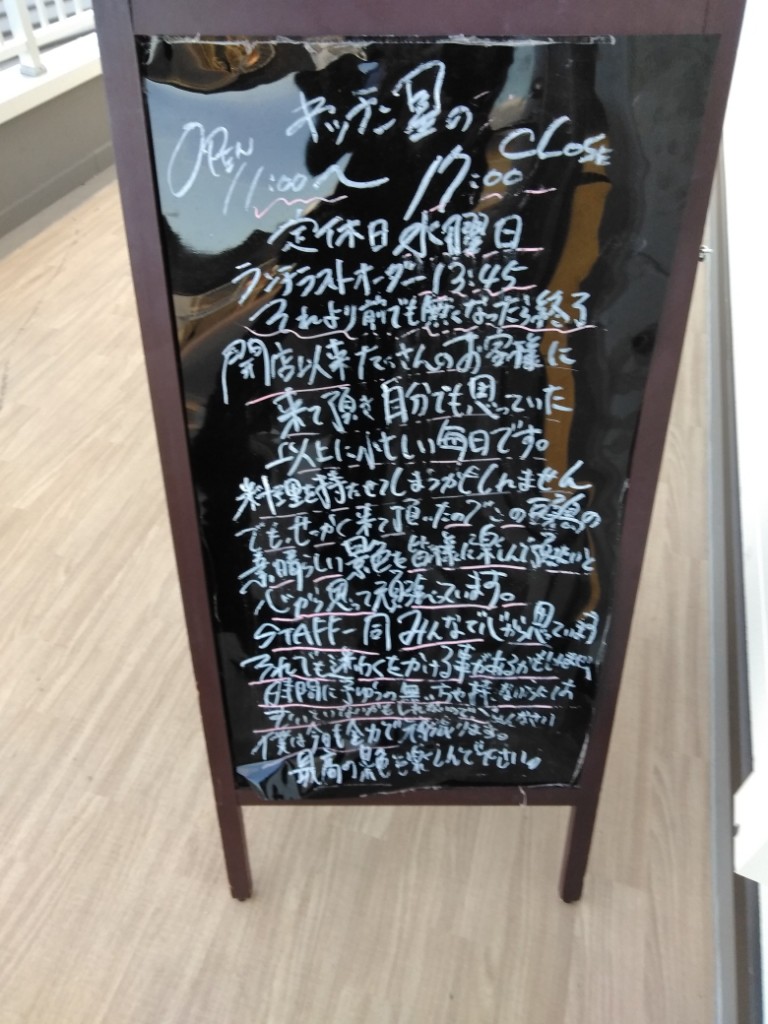 キッチン星の
OPEN CLOSE
11:00〜 17:00
定休日 水曜日
ランチラストオーダー 13:45
それより前でも無くなったら終了
開店以来たくさんのお客様に
来て頂き自分でも思っていた
以上に忙しい毎日です。
料理を持たせてしまうかもしれません
でも、せっかく来て頂いたのでこの
素晴らしい景色を皆様に楽しんで頂きたいと
心から思って頑張っています。
STAFF一同みんなで心から思っています
それでも迷わくをかける事があるかもしれません
時間に予ゆうの無い
僕は今日も全力で頑張ります。
最高の景色を楽しんで下さい。